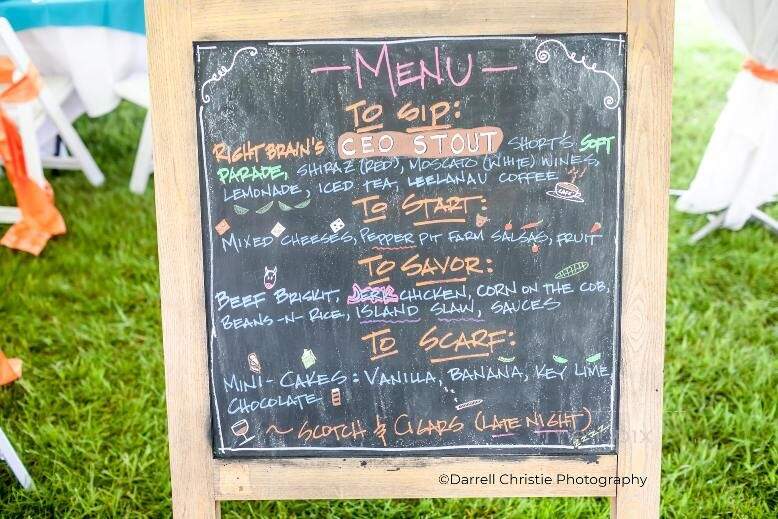 —MENU—
TO SIP:
RIGHT BRAIN'S CEO STOUT SHORT'S SOFT
PARADE, SHIRAZ (RED), MOSCATO (WHITE) WINES,
LEMONADE, ICED TEA, LEELANAU COFFEE
TO START:
MIXED CHEESES, PEPPER PIT FARM SALSAS, FRUIT
TO SAVOR:
BEEF BRISKIT, JERK CHICKEN, CORN ON THE COB,
BEANS-N-RICE, ISLAND SLAW, SAUCES
TO SCARF:
MINI-CAKES: VANILLA, BANANA, KEY LIME
CHOCOLATE
~ SCOTCH & CIGARS (LATE NIGHT)
zzzz
©Darrell Christie Photography